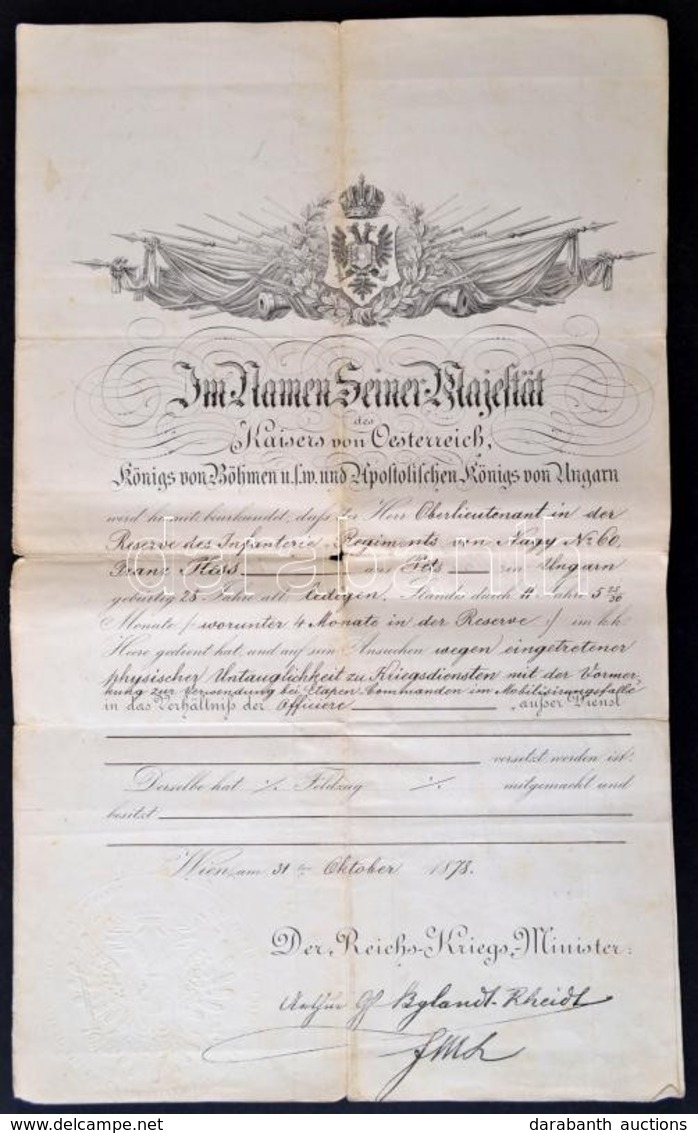 Im Namen Seiner Majestät
des
Kaisers von Oesterreich,
Königs von Böhmen u.s.w. und Apostolischen Königs von Ungarn
wird hiemit beurkundet, daß der Herr Oberlieutenant in der
Reserve des Infanterie-Regiments von Nagy No 60,
Franz aus in Ungarn
gebürtig 28 Jahre alt, ledigen Standes durch 4 Jahre 5 25/30
Monate /: worunter 4 Monate in der Reserve :/ im k.k.
Heere gedient hat, und auf sein Ansuchen wegen eingetretener
physischer Untauglichkeit zu Kriegsdiensten mit der Vormer-
kung zur Verwendung bei Etapen-Commanden im Mobilisirungsfalle
in das Verhältniß der Officiere „außer Dienst"
versetzt worden ist.
Derselbe hat ./. Feldzug ./. mitgemacht und
besitzt
Wien, am 31ten Oktober 1878.
Der Reichs-Kriegs-Minister:
Arthur Gf Bylandt-Rheidt
FML
darabanth
© delcampe.net
darabanth auctions